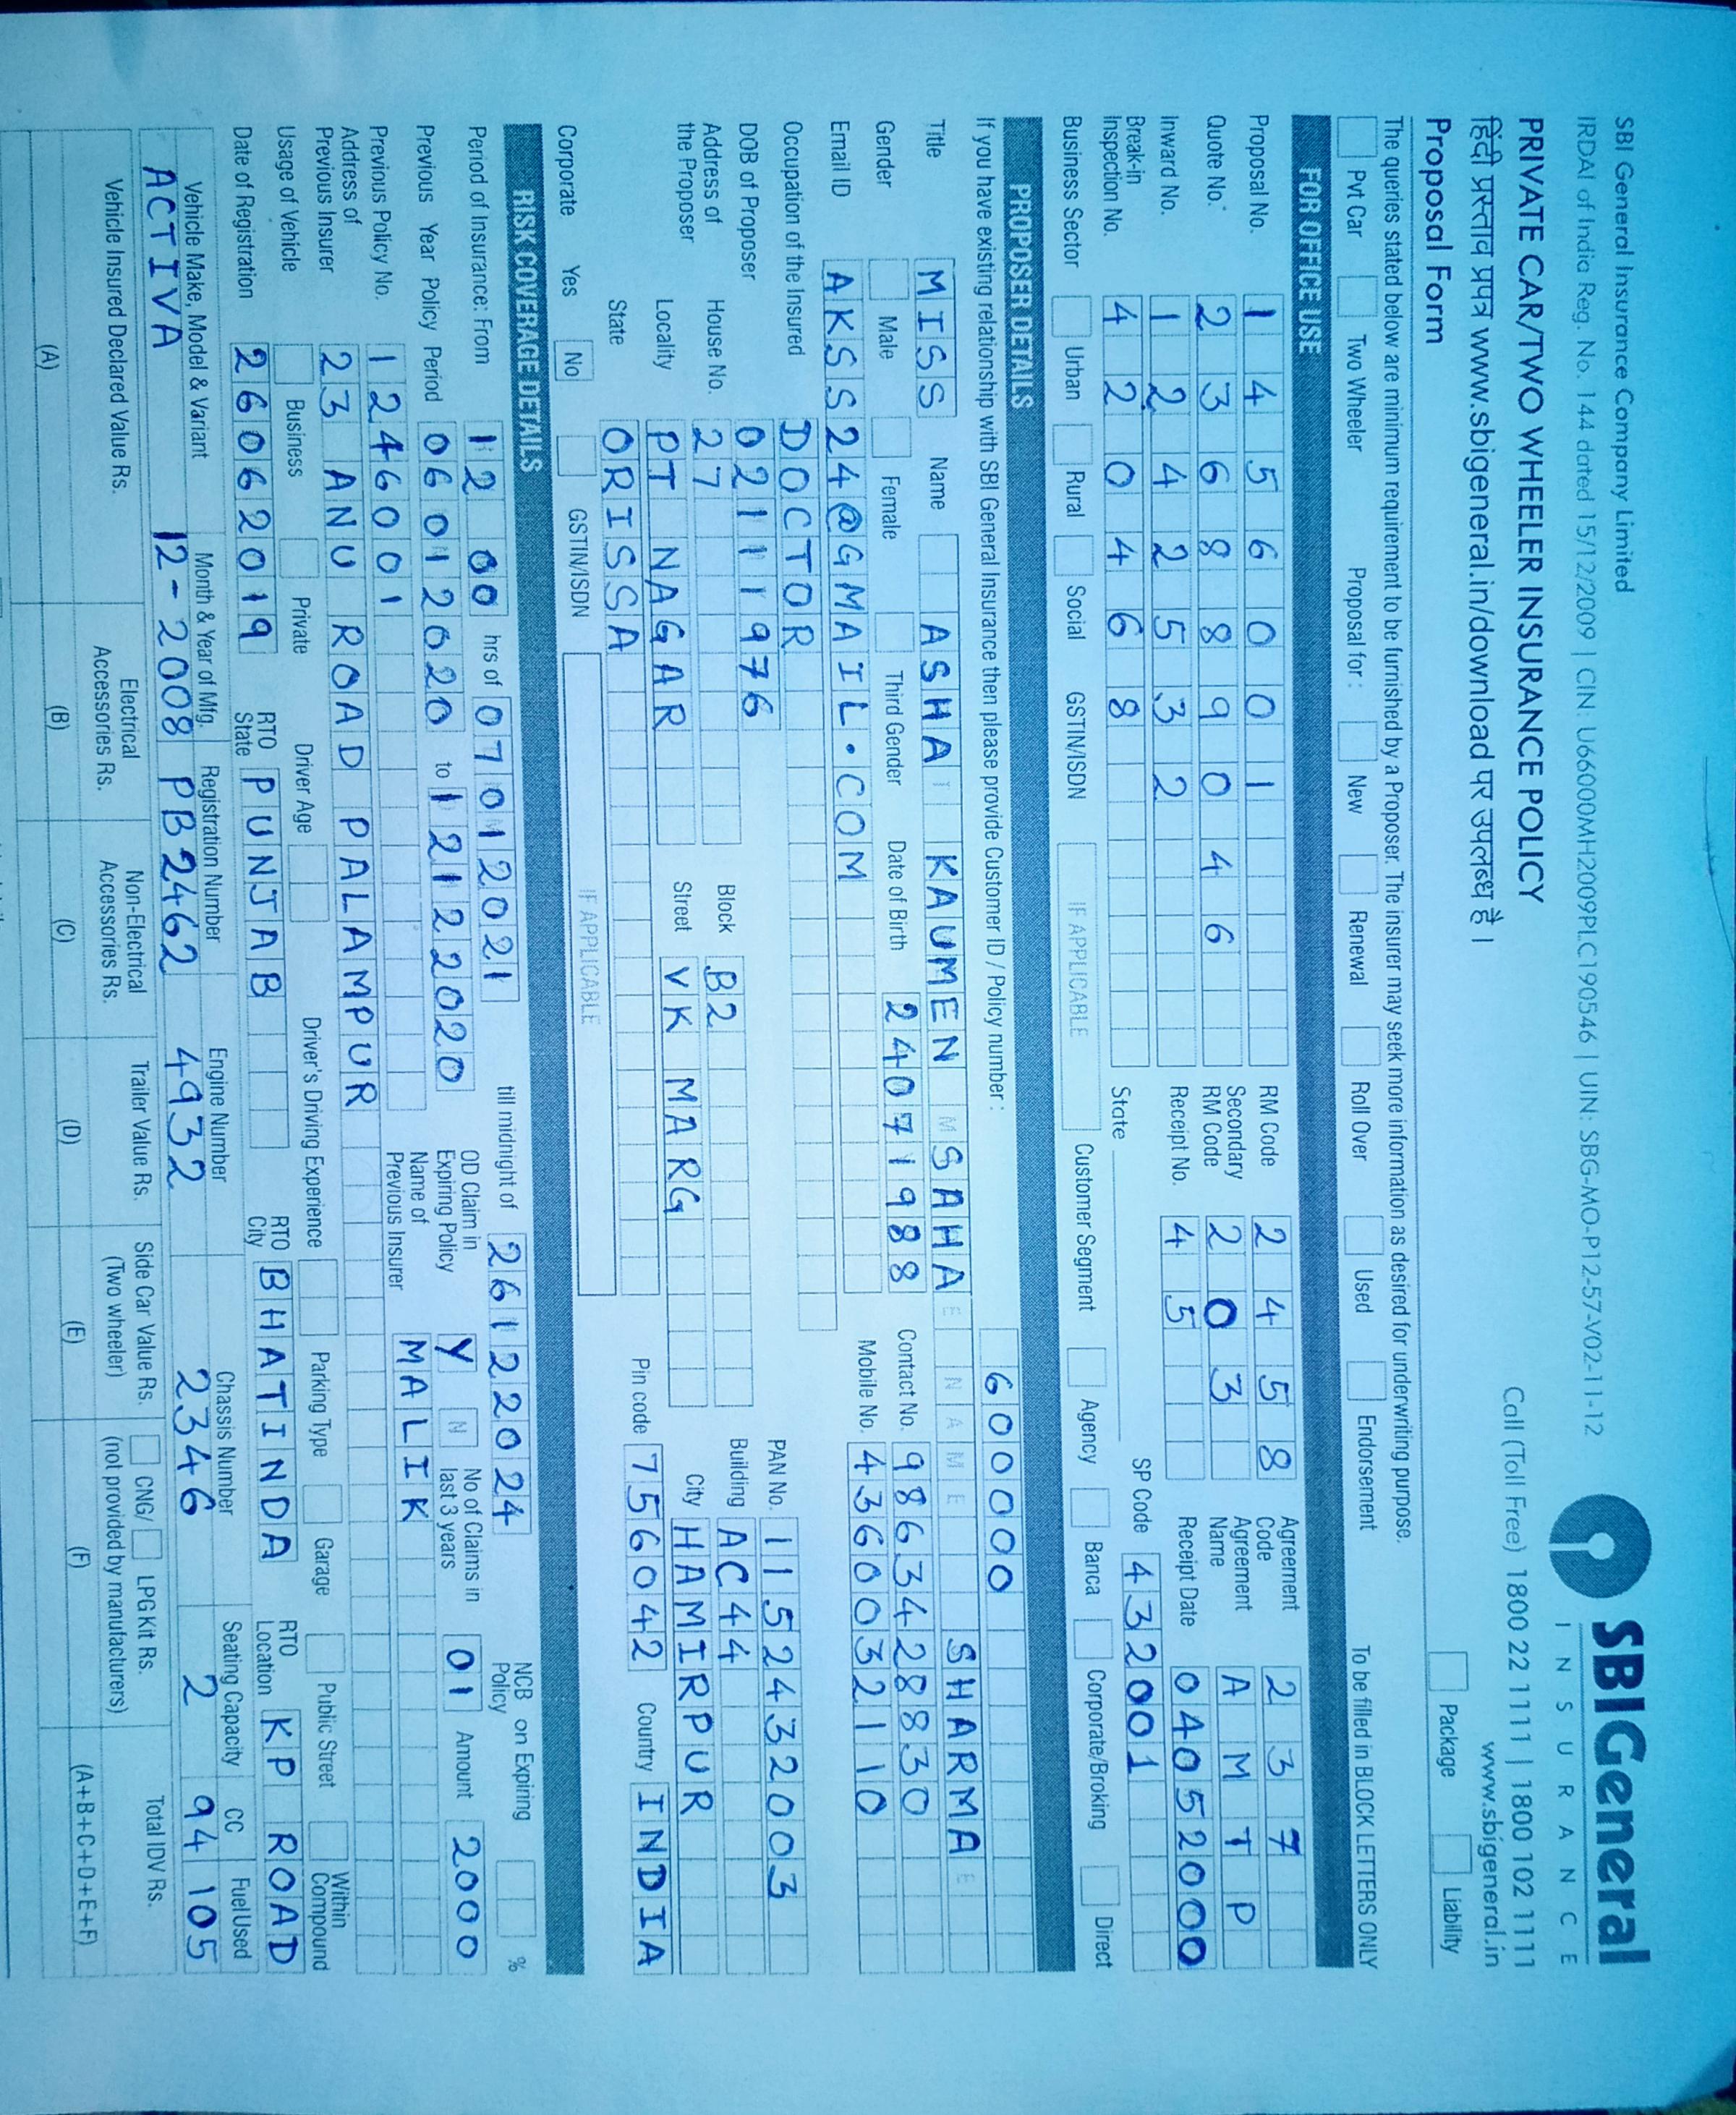 SBI General Insurance Company Limited
IRDAI of India Reg. No. 144 dated 15/12/2009 | CIN: U66000MH2009PLC190546 | UIN: SBG-MO-P12-57-V02-11-12
SBIGeneral
INSURANCE
PRIVATE CAR/TWO WHEELER INSURANCE POLICY
Call (Toll Free) 1800 22 1111 | 1800 102 1111
हिंदी प्रस्ताव प्रपत्र www.sbigeneral.in/download पर उपलब्ध है ।
www.sbigeneral.in
Proposal Form
Package Liability
The queries stated below are minimum requirement to be furnished by a Proposer. The insurer may seek more information as desired for underwriting purpose.
Pvt Car Two Wheeler Proposal for : New Renewal Roll Over Used Endorsement To be filled in BLOCK LETTERS ONLY
FOR OFFICE USE
Proposal No. 1456001 RM Code 2458 Agreement Code 237
Quote No.* 236889046 Secondary RM Code 203 Agreement Name AMTP
Inward No. 1242532 Receipt No. 45 Receipt Date 04052000
Break-in Inspection No. 420468 State SP Code 432001
Business Sector Urban Rural Social GSTIN/ISDN IF APPLICABLE Customer Segment Agency Banca Corporate/Broking Direct
PROPOSER DETAILS
If you have existing relationship with SBI General Insurance then please provide Customer ID / Policy number : 600000
Title MISS Name ASHA KAUMEN SAHA NAME SHARMA
Gender Male Female Third Gender Date of Birth 24071988 Contact No. 9863428830
Email ID AKSS24@GMAIL.COM Mobile No. 4360032110
Occupation of the Insured DOCTOR
DOB of Proposer 02111976 PAN No. 1152432003
Address of the Proposer House No. 27 Block B2 Building AC44
Locality PT NAGAR Street VK MARG City HAMIRPUR
State ORISSA Pin code 756042 Country INDIA
Corporate Yes No GSTIN/ISDN IF APPLICABLE
RISK COVERAGE DETAILS
Period of Insurance: From 12 00 hrs of 07012021 till midnight of 26122024 NCB on Expiring Policy %
Previous Year Policy Period 06012020 to 12122020 OD Claim in Expiring Policy Y N No of Claims in last 3 years 01 Amount 2000
Previous Policy No. 1246001 Name of Previous Insurer MALIK
Address of Previous Insurer 23 ANU ROAD PALAMPUR
Usage of Vehicle Business Private Driver Age Driver's Driving Experience Parking Type Garage Public Street Within Compound
Date of Registration 26062019 RTO State PUNJAB RTO City BHATINDA RTO Location KP ROAD
Vehicle Make, Model & Variant Month & Year of Mfg. Registration Number Engine Number Chassis Number Seating Capacity CC Fuel Used
ACTIVA 12-2008 PB2462 4932 2346 2 94 105
Vehicle Insured Declared Value Rs. Electrical Accessories Rs. Non-Electrical Accessories Rs. Trailer Value Rs. Side Car Value Rs. (Two wheeler) CNG/ LPG Kit Rs. (not provided by manufacturers) Total IDV Rs.
(A) (B) (C) (D) (E) (F) (A+B+C+D+E+F)